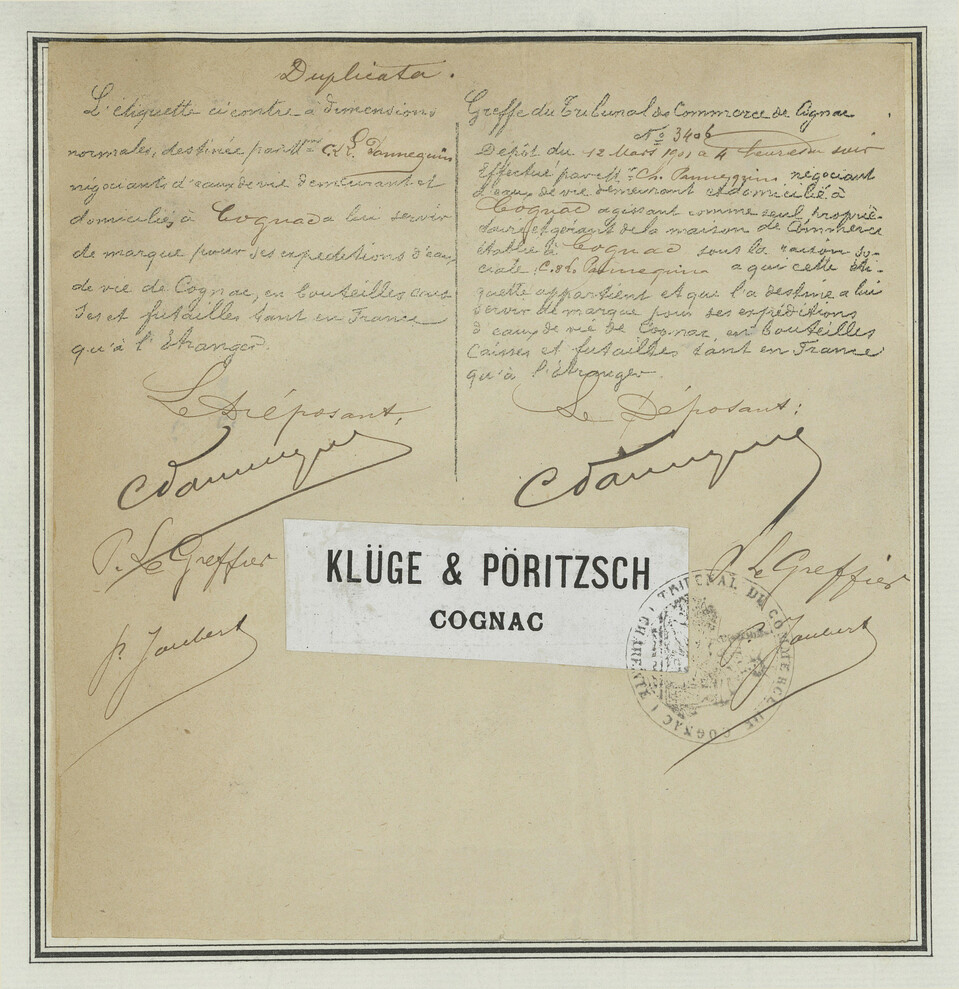 Duplicata.
L'étiquette ci contre à dimensions
normales, destinée par Mrs C. & L. Dannequin
négociants d'eaux de vie demeurant et
domiciliés à Cognac a lui servir
de marque pour ses expéditions d'eaux
de vie de Cognac, en bouteilles cais
ses et futailles tant en France
qu'à l'étranger.
Le Déposant,
P. Le Greffier
P. Joubert
Greffe du Tribunal de Commerce de Cognac
No 3406
Dépôt du 12 Mars 1901 à 4 heure du soir
Effectué par Mr Ch. négociant
d'eaux de vie demeurant et domicilié à
Cognac agissant comme seul proprié-
taire et gérant de la maison de Commerce
établie à Cognac sous la raison so-
ciale C. & L. Dannequin a qui cette éti-
quette appartient et que l'a destine a lui
servir de marque pour ses expéditions
d'eaux de vie de Cognac en bouteilles
Caisses et futailles tant en France
qu'à l'étranger.
Le Déposant:
P. Le Greffier
P. Joubert
KLÜGE & PÖRITZSCH
COGNAC
TRIBUNAL DE COMMERCE DE COGNAC (CHARENTE)